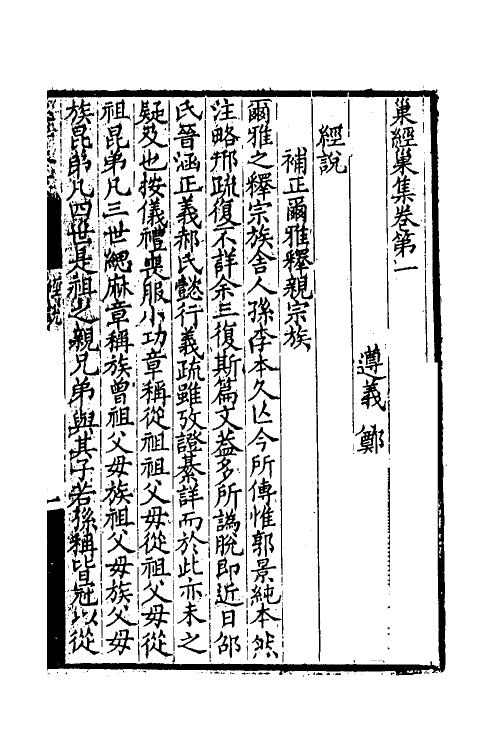 巢經巢集卷第一
遵義 鄭
經說
補正爾雅釋親宗族
爾雅之釋宗族舍人孫李本久亾今所傳惟郭景純本然
注略邢疏復不詳余三復斯篇文益多所譌脫即近日邵
氏晉涵正義郝氏懿行義疏雖攷證綦詳而於此亦未之
疑及也按儀禮喪服小功章稱從祖祖父母從祖父母從
祖昆弟凡三世緦麻章稱族曾祖父母族祖父母族父母
族昆弟凡四世是祖之親兄弟與其子若孫稱皆冠以從
經說
一